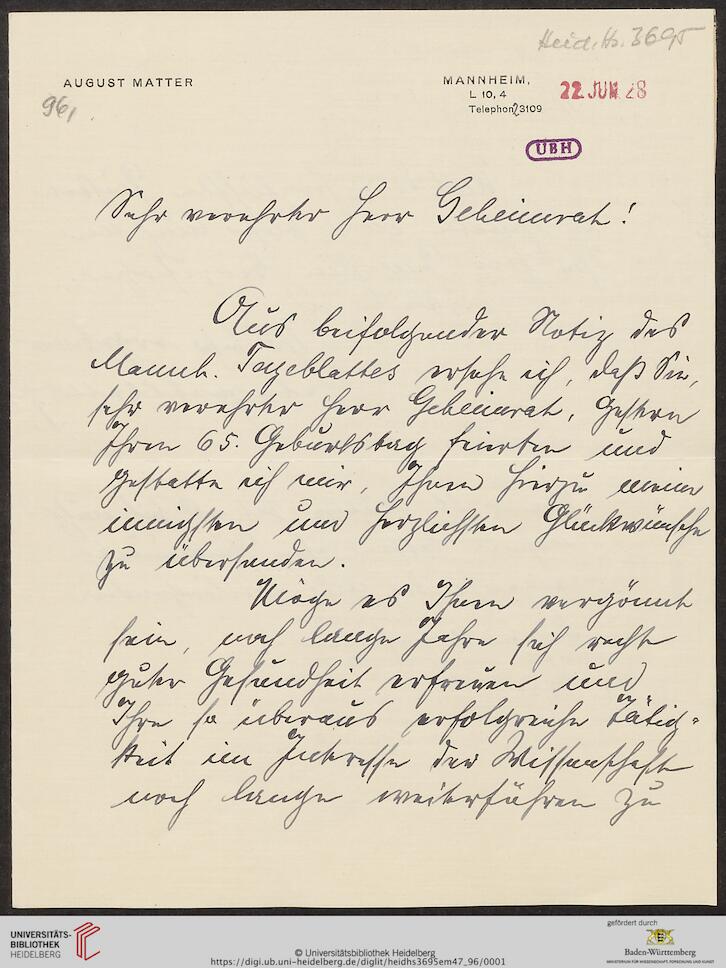 Heid. Hs. 3695
AUGUST MATTER
MANNHEIM,
L 10, 4
Telephon 23109
22 JUN. 28
96,
UBH
Sehr verehrter Herr Geheimrat!
Aus beifolgender Notiz des
Mannh. Tageblattes ersehe ich, daß Sie,
sehr verehrter Herr Geheimrat, gestern
Ihren 65. Geburtstag feierten und
gestatte ich mir, Ihnen hierzu meine
innigsten und herzlichsten Glückwünsche
zu übersenden.
Möge es Ihnen vergönnt
sein, noch lange Jahre sich recht
guter Gesundheit erfreuen und
Ihre so überaus erfolgreiche Tätig-
keit im Interesse der Wissenschaft
noch lange weiterführen zu
UNIVERSITÄTS-
BIBLIOTHEK
HEIDELBERG
© Universitätsbibliothek Heidelberg
https://digi.ub.uni-heidelberg.de/diglit/heidhs3695em47_96/0001
gefördert durch
Baden-Württemberg
MINISTERIUM FÜR WISSENSCHAFT, FORSCHUNG UND KUNST